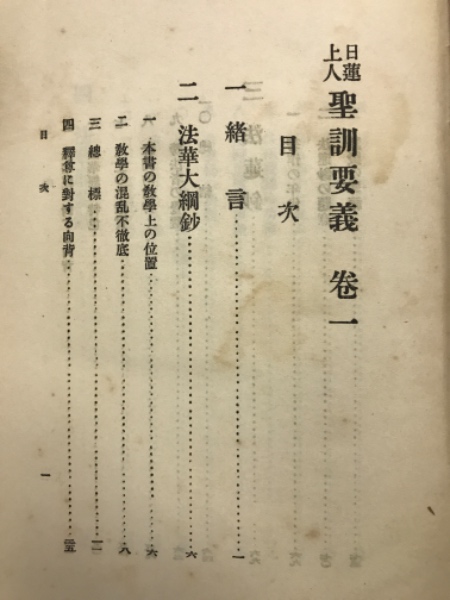 日蓮上人 聖訓要義 卷一
目次
一 緒言……一
二 法華大綱鈔……六
一 本書の敎學上の位置……六
二 敎學の混乱不徹底……八
三 總標……一二
四 釋尊に對する向背……
目次 一